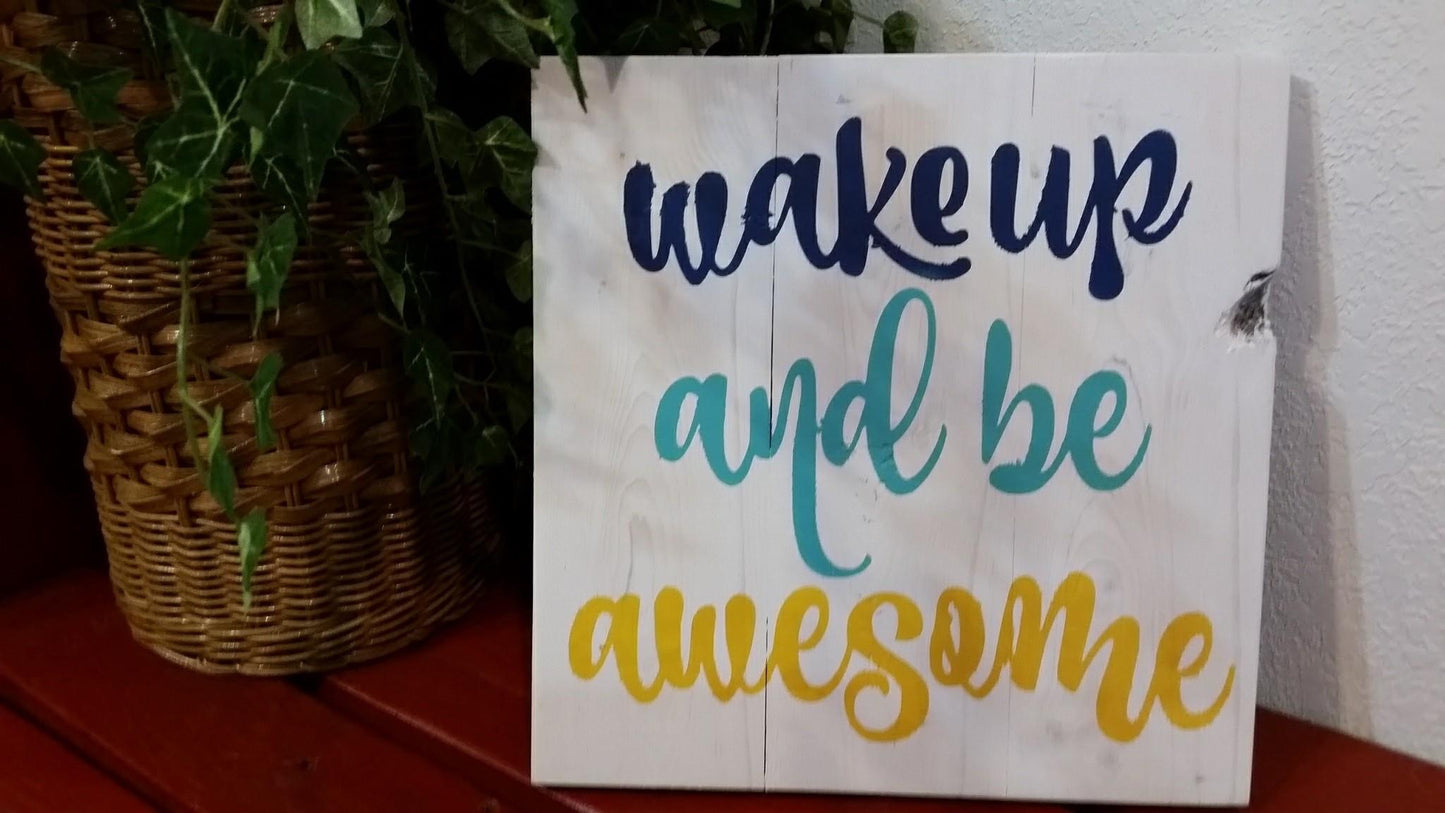 wake up
and be
awesome